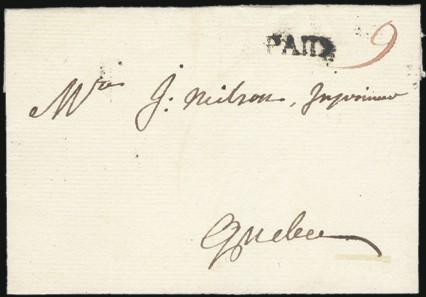 PAID 9
Mrs J: Neilson, Imprimeur
Quebec